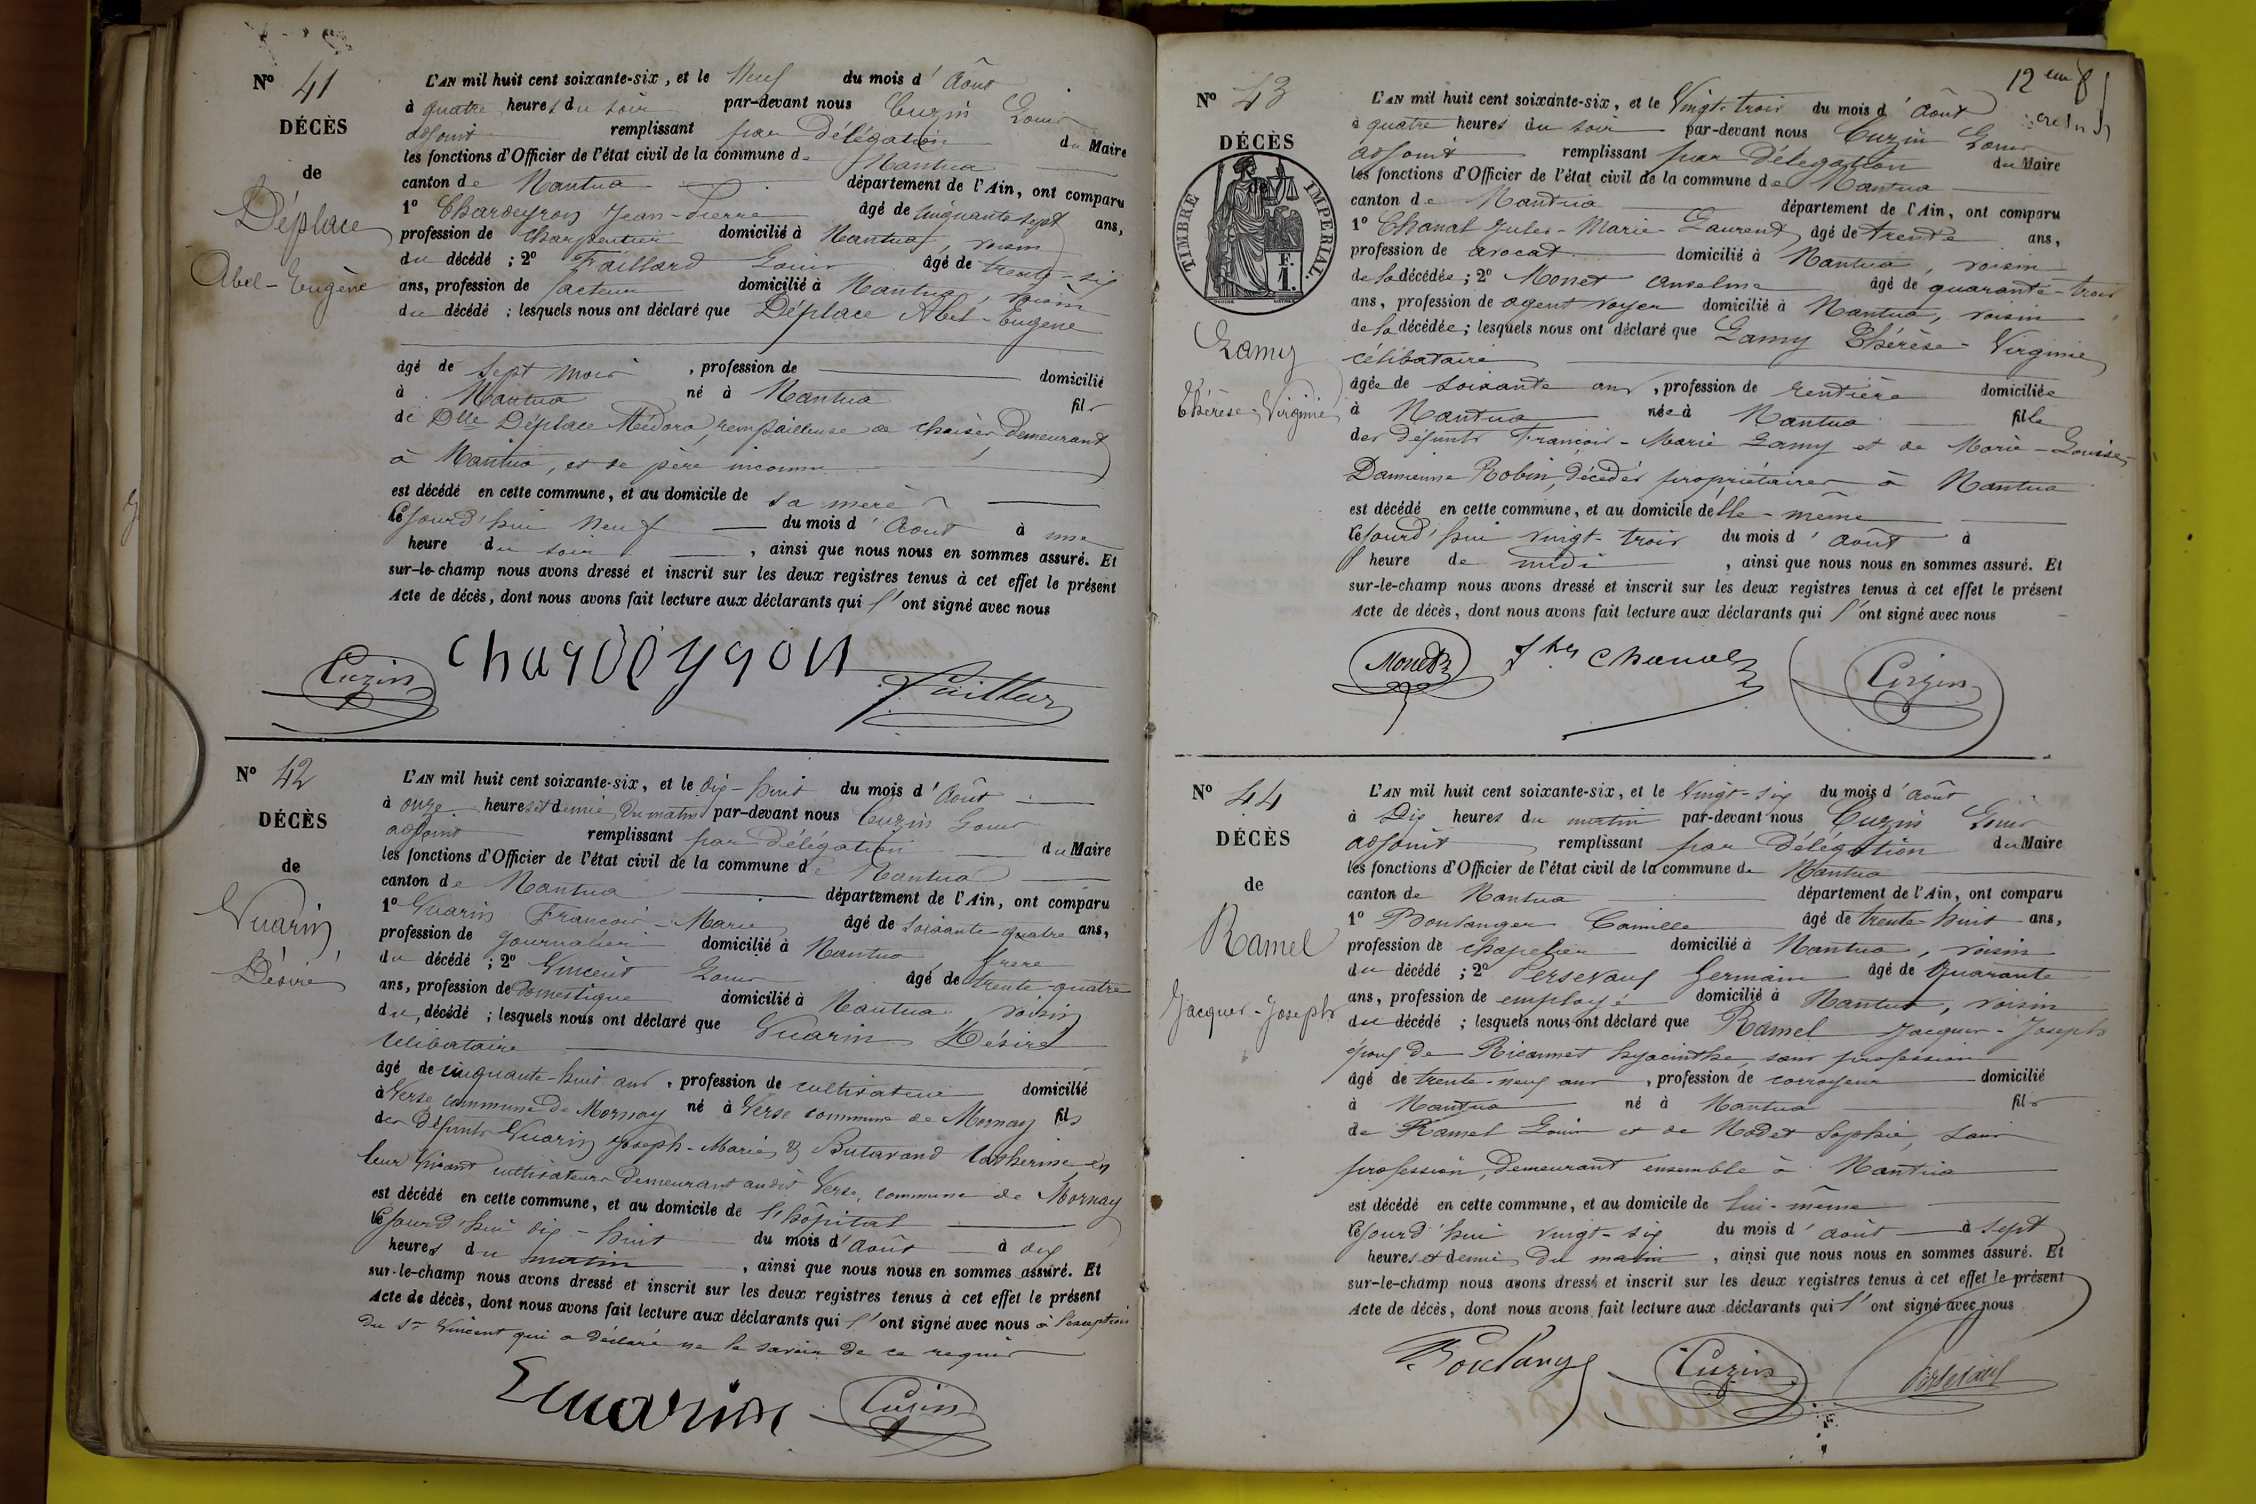 N° 41
DÉCÈS
de
Déplace
Abel-Eugène
L'AN mil huit cent soixante-six, et le Neuf du mois d'Août
à quatre heures du soir par-devant nous Cuzin Louis
adjoint remplissant par Délégation du Maire
les fonctions d'Officier de l'état civil de la commune de Nantua
canton de Nantua département de l'Ain, ont comparu
1° Chardeyron Jean-Pierre âgé de cinquante sept ans,
profession de charpentier domicilié à Nantua, voisin
du décédé ; 2° Faillard Louis âgé de trente-six
ans, profession de facteur domicilié à Nantua, voisin
du décédé ; lesquels nous ont déclaré que Déplace Abel-Eugène
âgé de sept mois, profession de domicilié
à Nantua né à Nantua fils
de Dlle Déplace Médora, rempailleuse de chaises demeurant
à Nantua, et de père inconnu
est décédé en cette commune, et au domicile de sa mère
cejourd'hui neuf du mois d'Août à une
heure du soir, ainsi que nous nous en sommes assuré. Et
sur-le-champ nous avons dressé et inscrit sur les deux registres tenus à cet effet le présent
Acte de décès, dont nous avons fait lecture aux déclarants qui l'ont signé avec nous
Cuzin Chardeyron
N° 42
DÉCÈS
de
Vuarin
Désiré
L'AN mil huit cent soixante-six, et le dix-huit du mois d'Août
à onze heures et demie du matin par-devant nous Cuzin Louis
adjoint remplissant par Délégation du Maire
les fonctions d'Officier de l'état civil de la commune de Nantua
canton de Nantua département de l'Ain, ont comparu
1° Vuarin François-Marie âgé de soixante-quatre ans,
profession de journalier domicilié à Nantua frère
du décédé ; 2° Vincent Louis âgé de trente-quatre
ans, profession de domestique domicilié à Nantua voisin
du décédé ; lesquels nous ont déclaré que Vuarin Désiré
célibataire
âgé de cinquante-huit ans, profession de cultivateur domicilié
à Verse commune de Mornay né à Verse commune de Mornay fils
des défunts Vuarin Joseph-Marie & Butavand Catherine en
leur vivant cultivateurs demeurant audit Verse, commune de Mornay
est décédé en cette commune, et au domicile de l'hôpital
cejourd'hui dix-huit du mois d'Août à dix
heures du matin, ainsi que nous nous en sommes assuré. Et
sur-le-champ nous avons dressé et inscrit sur les deux registres tenus à cet effet le présent
Acte de décès, dont nous avons fait lecture aux déclarants qui l'ont signé avec nous à l'exception
du Sr Vincent qui a déclaré ne le savoir de ce requis
Cuzin
12eme
N° 43
DÉCÈS
TIMBRE IMPÉRIAL.
F.
1.
Lamy
Thérèse-Virginie
L'AN mil huit cent soixante-six, et le Vingt-trois du mois d'Août
à quatre heures du soir par-devant nous Cuzin Louis
adjoint remplissant par Délégation du Maire
les fonctions d'Officier de l'état civil de la commune de Nantua
canton de Nantua département de l'Ain, ont comparu
1° Chanal Jules-Marie-Laurent âgé de trente ans,
profession de avocat domicilié à Nantua, voisin
de la décédée ; 2° Monet Anselme âgé de quarante-trois
ans, profession de agent voyer domicilié à Nantua, voisin
de la décédée ; lesquels nous ont déclaré que Lamy Thérèse-Virginie
célibataire
âgée de soixante ans, profession de rentière domiciliée
à Nantua née à Nantua fille
des défunts François-Marie Lamy et de Marie-Louise-
Damienne Robin, décédés propriétaires à Nantua
est décédé en cette commune, et au domicile d'elle-même
cejourd'hui vingt-trois du mois d'Août à
l'heure de midi, ainsi que nous nous en sommes assuré. Et
sur-le-champ nous avons dressé et inscrit sur les deux registres tenus à cet effet le présent
Acte de décès, dont nous avons fait lecture aux déclarants qui l'ont signé avec nous
Monet Jles Chanal Cuzin
N° 44
DÉCÈS
de
Ramel
Jacques-Joseph
L'AN mil huit cent soixante-six, et le Vingt-six du mois d'Août
à Dix heures du matin par-devant nous Cuzin Louis
adjoint remplissant par Délégation du Maire
les fonctions d'Officier de l'état civil de la commune de Nantua
canton de Nantua département de l'Ain, ont comparu
1° Boulanger Camille âgé de trente-huit ans,
profession de chapelier domicilié à Nantua, voisin
du décédé ; 2° Persevaux Germain âgé de Quarante
ans, profession de employé domicilié à Nantua, voisin
du décédé ; lesquels nous ont déclaré que Ramel Jacques-Joseph
époux de hyacinthe, sans profession
âgé de trente-neuf ans, profession de corroyeur domicilié
à Nantua né à Nantua fils
de Ramel Louis et de Nodet Sophie, sans
profession, demeurant ensemble à Nantua
est décédé en cette commune, et au domicile de lui-même
cejourd'hui vingt-six du mois d'Août à sept
heures et demie du matin, ainsi que nous nous en sommes assuré. Et
sur-le-champ nous avons dressé et inscrit sur les deux registres tenus à cet effet le présent
Acte de décès, dont nous avons fait lecture aux déclarants qui l'ont signé avec nous
Cuzin